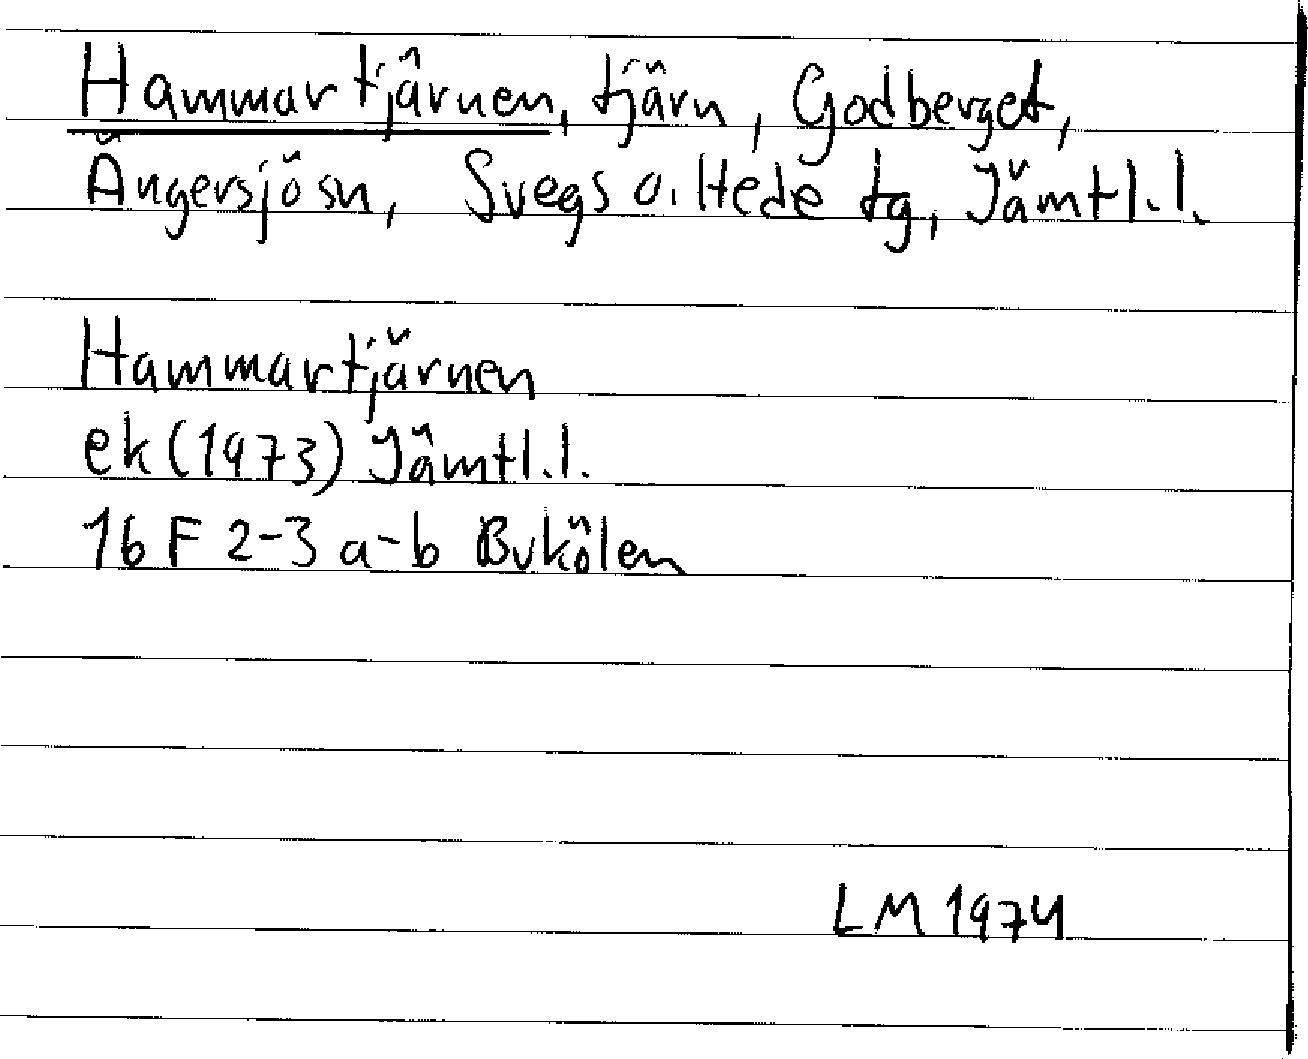 Hammartjärnen, tjärn, Godberget,
Ängersjö sn, Svegs o. Hede tg, Jämtl.l.
Hammartjärnen
ek (1973) Jämtl.l.
16 F 2-3 a-b Bukölen
LM 1974